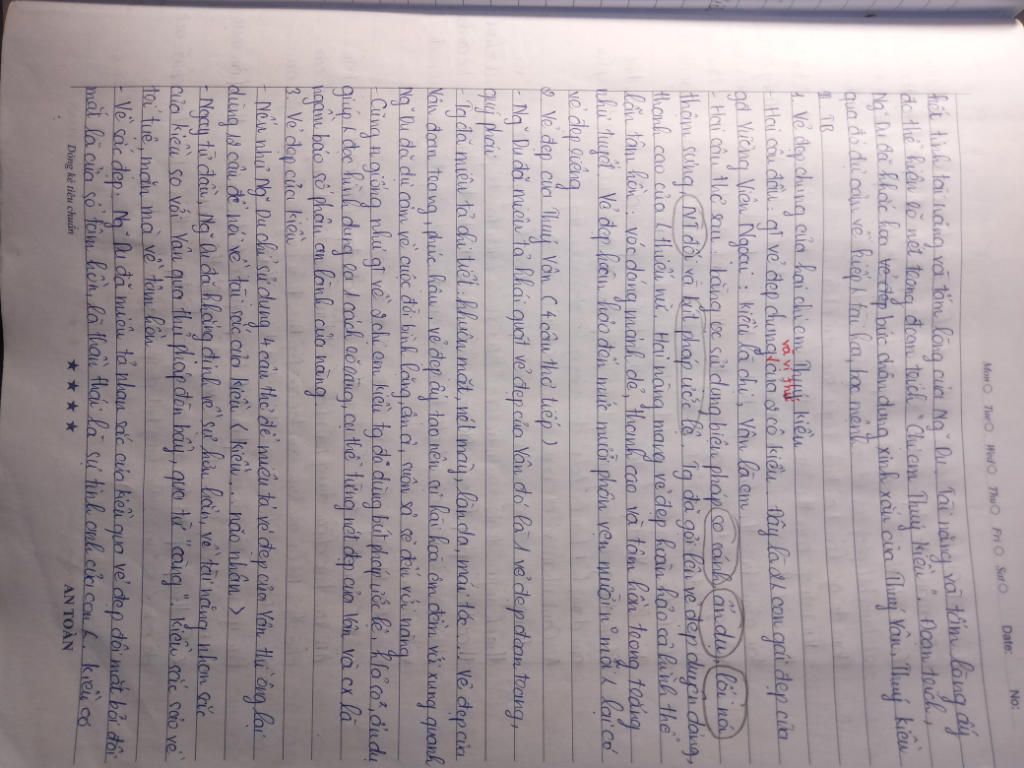 No:
Date:
Mon○ Tue○ Wed○ Thu○ Fri○ Sat○
hết thì tài năng và tấm lòng của Ng~ Du. Tài năng và tấm lòng ấy
đc thể hiện rõ nét trong đoạn trích "Chị em Thuý Kiều". Đoạn trích,
Ng~ Du đã khắc họa bức chân dung xinh xắn của Thuý Vân, Thuý Kiều
qua đó dự cảm về kiếp tài hoa, bạc mệnh
II. TB
1. Vẻ đẹp chung của hai chị em Thuý Kiều
và vị thứ
- Hai câu đầu: gt vẻ đẹp chung của ả Kiều đây là 2 con gái đẹp của
gđ Vương Viên Ngoại: Kiều là chị, Vân là em
- Hai câu thơ sau: bằng các sử dụng biện pháp có cánh, ẩn dụ, lối nói
thậm xưng, và bút pháp ước lệ tg đã gợi lên vẻ đẹp duyên dáng,
thanh cao của thiếu nữ. Hai nàng mang vẻ đẹp hoàn hảo cả hình thể
lẫn tâm hồn: vóc dáng mảnh dẻ, thanh cao và tâm hồn trong trắng
như tuyết. Vẻ đẹp hoàn hảo đến mức mười phân vẹn mười n mỗi lại có
vẻ đẹp riêng
2 Vẻ đẹp của Thuý Vân (4 câu thơ tiếp)
- Ng~ Du đã miêu tả khái quát vẻ đẹp của Vân đó là 1 vẻ đẹp đoan trang,
quý phái
- Tg đã miêu tả chi tiết khuôn mặt, nét mày, làn da, mái tóc... vẻ đẹp của
Vân đoan trang, phúc hậu. vẻ đẹp ấy tạo nên sự hài hòa êm đềm với xung quanh
Ng~ Du dự cảm về cuộc đời bình lặng, suôn sẻ đối với nàng
- Cũng giống như gt về chị em Kiều tg đã dùng bút pháp ước lệ,
giúp đọc hình dung ra 1 cách rõ ràng, cụ thể từng nét đẹp của Vân và cx là
ngầm báo số phận an lành của nàng
3. Vẻ đẹp của Kiều
- Nếu như Ng~ Du chỉ sử dụng 4 câu thơ để miêu tả vẻ đẹp của Vân thì ông lại
dùng 12 câu để nói về tài sắc của Kiều (Kiều... não nhân)
- Ngay từ đầu, Ng~ Du đã khẳng định về sự hơn hẳn, về tài năng, nhan sắc
của Kiều so với Vân qua thủ pháp đòn bẩy, qua từ "càng". Kiều sắc sảo về
trí tuệ, mặn mà về tâm hồn
- Về sắc đẹp. Ng~ Du đã miêu tả nhan sắc của Kiều qua vẻ đẹp đôi mắt bởi đôi
mắt là cửa sổ tâm hồn là thần thái là sự tinh anh của con. Kiều có
Dòng kẻ tiêu chuẩn
★ ★ ★ ★
AN TOÀN